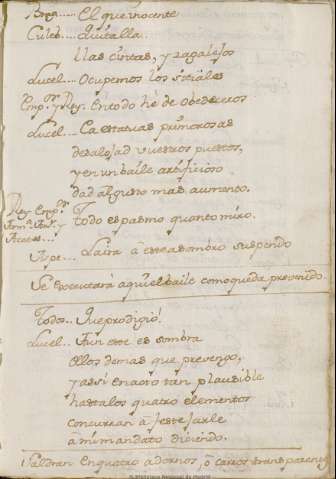 Brig..... El que inocente
Culeb.... Quitalla.
llas cintas, y zagalejos
Lucel.... Ocupemos los sitiales
Emp.or y Rey. En todo hé de obedeceros
Lucel.... Ea estatuas primorosas
desalojad vuestros puestos,
y en un baile artificioso
dad al gusto mas aumento.
Rey Emp.or
y
Todo es pasmo quanto miro.
suspendo
Se executará aqui el baile como queda prevenido.
Todos... Que prodigio!
Lucel... Aun este es sombra
ellos demas que prevengo,
y assi en acto tan plausible
hasta los quatro elementos
concurran á festejarle
á mi mandato diciendo.
Saldran en quatro adornos, ó carros transparentes
Biblioteca Nacional de España